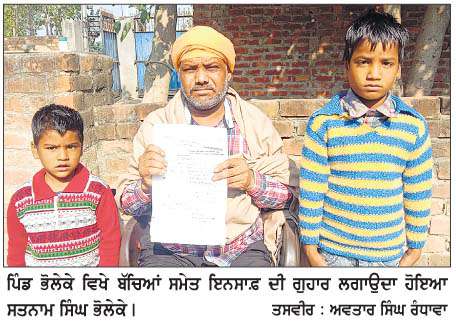 ਪਿੰਡ ਭੋਲੇਕੇ ਵਿਖੇ ਬੱਚਿਆਂ ਸਮੇਤ ਇਨਸਾਫ਼ ਦੀ ਗੁਹਾਰ ਲਗਾਉਦਾ ਹੋਇਆ
ਸਤਨਾਮ ਸਿੰਘ ਭੋਲੇਕੇ। ਤਸਵੀਰ : ਅਵਤਾਰ ਸਿੰਘ ਰੰਧਾਵਾ